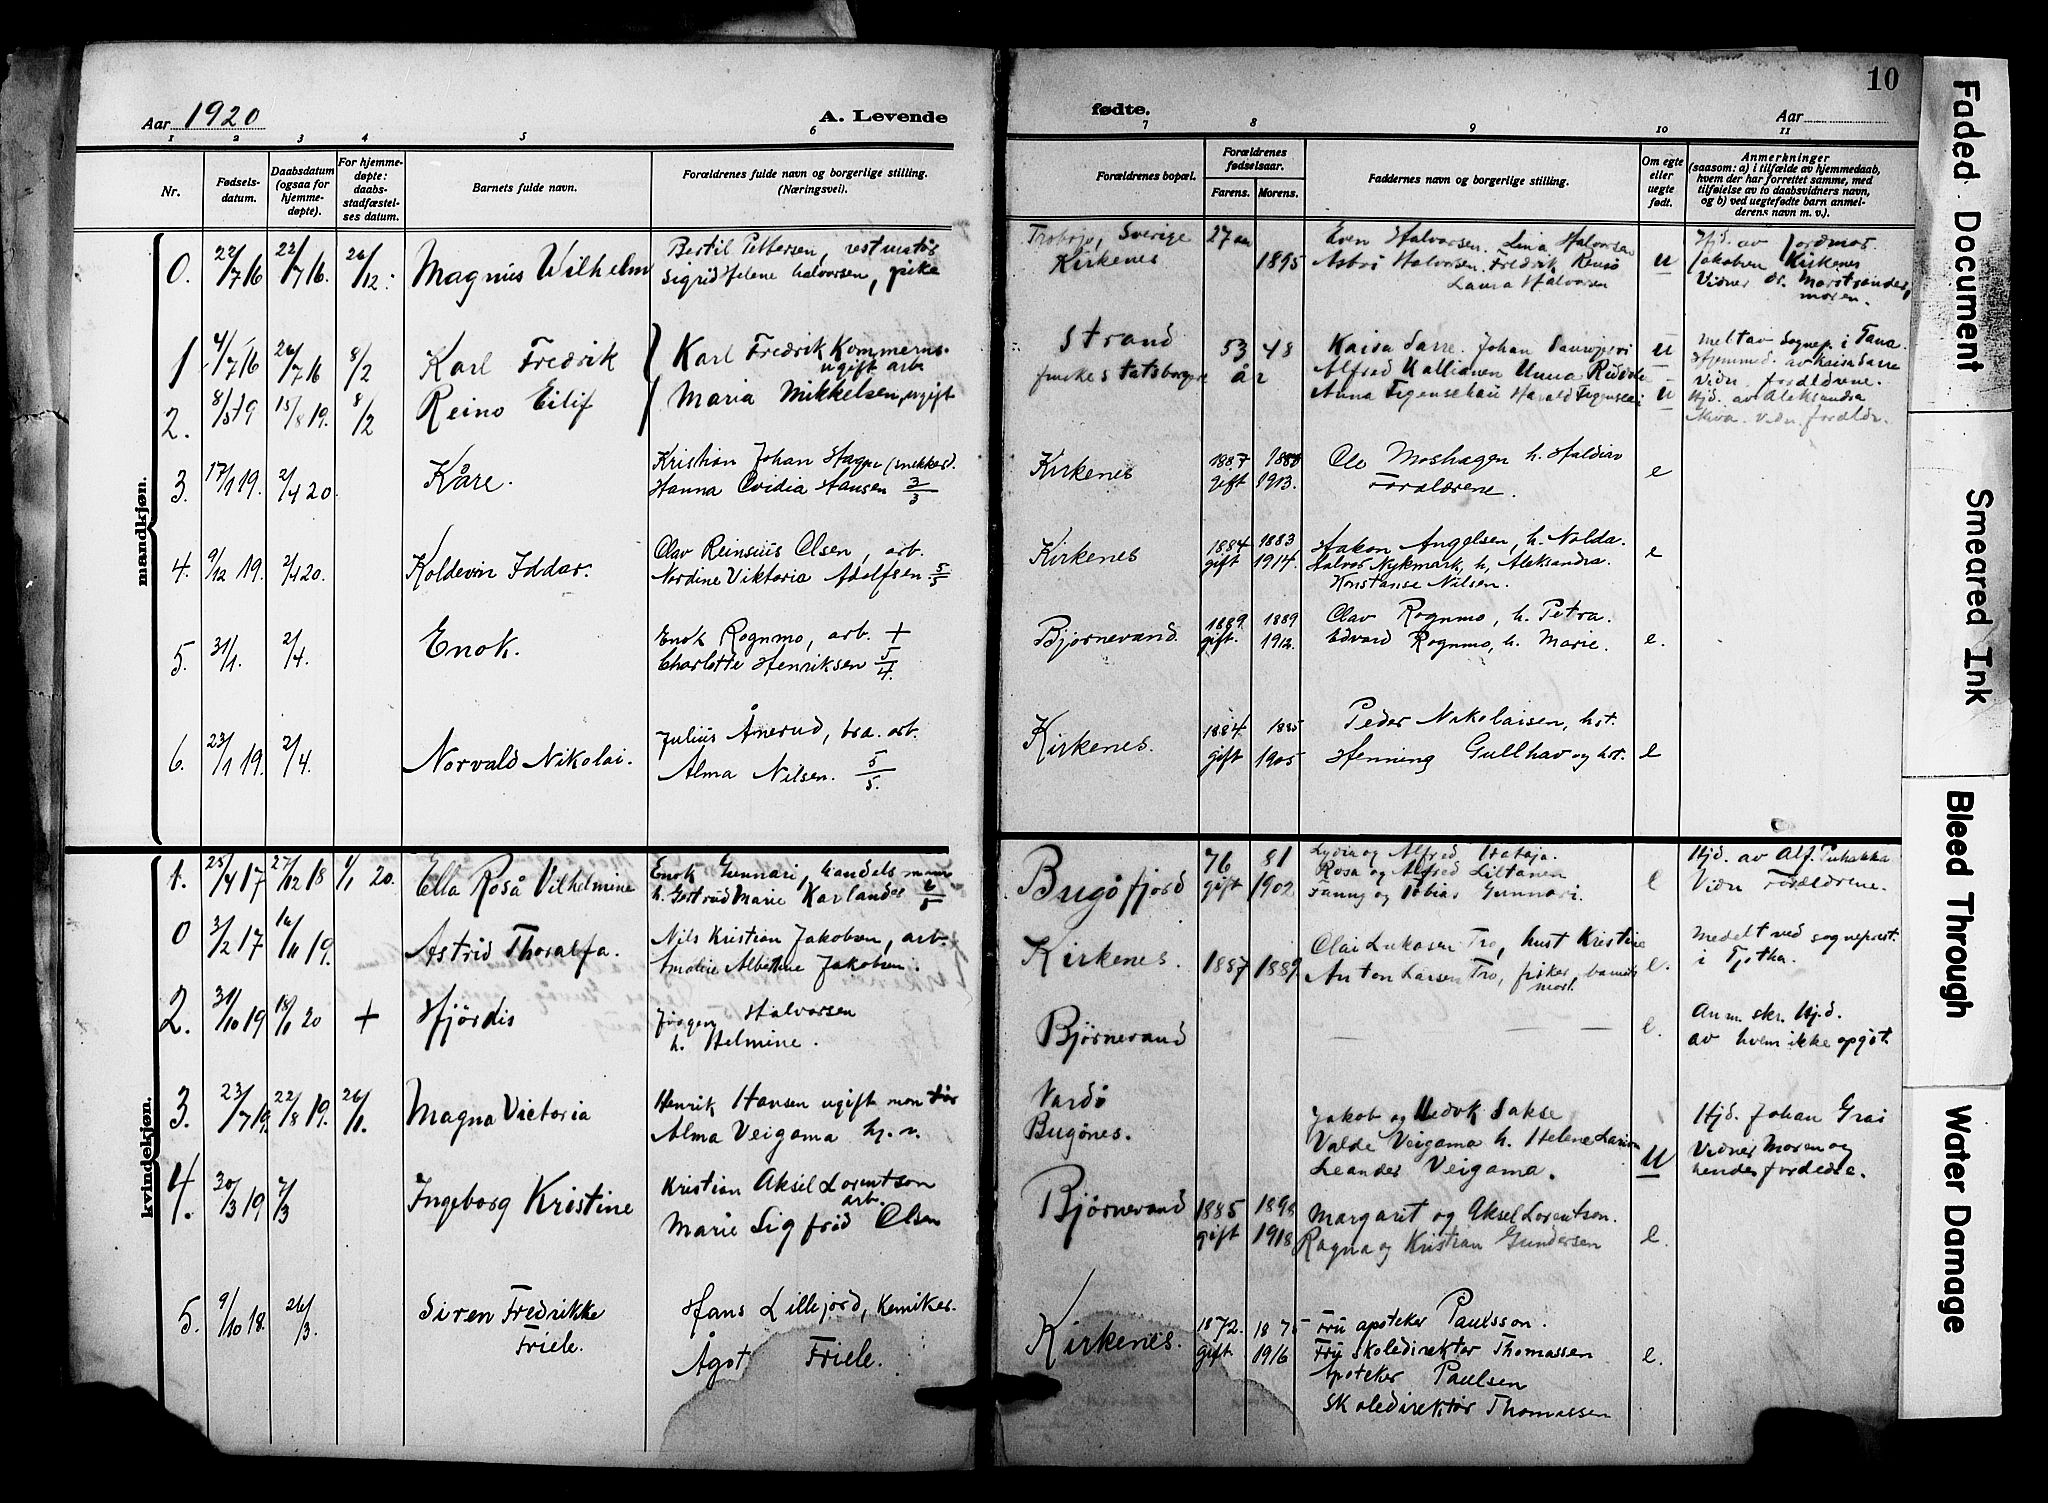 10
Aar 1920
A. Levende
fødte.
Aar
1 2 3 4 5 6 7 8 9 10 11
Nr.
Fødsels-
datum.
Daabsdatum
(ogsaa for
hjemme-
døpte).
For hjemme-
døpte:
daabs-
stadfæstel-
ses datum.
Barnets fulde navn.
Forældrenes fulde navn og borgerlige stilling.
(Næringsvei).
Forældrenes bopæl.
Forældrenes
fødselsaar.
Farens. Morens.
Faddernes navn og borgerlige stilling.
Om egte
eller
uegte
født.
Anmerkninger
(saasom: a) i tilfælde av hjemmedaab,
hvem der har forrettet samme, med
tilføielse av to daabsvidners navn,
og b) ved uegtefødte barn anmel-
derens navn m. v.).
mandkjøn.
0. 22/7 16 22/7 16. 26/12. Magnus Wilhelm
Bertil Pettersen,
Sigrid Helene Halvorsen, pike
Sverige
Kirkenes
27 1895
Even Halvorsen. Lina Halvorsen
Halvorsen. Fredrik
Laura Halvorsen
u
Hjd. av Jordmor
Jakobsen Kirkenes
Vidner
moren.
1 4/7 16 26/7 16 8/2 Karl Fredrik
Karl Fredrik
ugift arb
Strand
53 48
Kaisa Sarre. Johan
u
av Sognep. i Tana.
Hjemmed. av Kaisa Sarre
Vidn. forældrene.
2. 8/5 19 15/8 19. 8/2 Reino Eilif
Maria Mikkelsen, ugift
finske statsborgere
år
Alfred
Anna Harald
u
Hjd. av Aleksandra
Vidn. forældr.
3. 17/1 19. 2/4 20. Kåre.
Kristian Johan
Hanna Ovidia Hansen 3/3
Kirkenes
1887 gift 1913.
Ole Moshagen h.
Forældrene.
e
4. 9/12 19. 2/4 20. Koldevin Oddar.
Olav Reinsius Olsen, arb.
Nordine Viktoria Adolfsen 5/5
Kirkenes
1884 1883
gift 1914.
Hakon Angelsen, h. Nolda.
Halvor Nykmark, h. Aleksandra
Konstanse Nilsen.
e
5. 31/1. 2/4. Enok.
Enok Rognmo, arb. +
Charlotte Henriksen 5/4
Bjørnevand
1889. 1889
gift. 1912.
Olav Rognmo, h. Petra.
Edvard Rognmo, h. Marie.
e.
6. 23/1 19. 2/4. Norvald Nikolai.
Julius Ånerud, arb.
Alma Nilsen. 5/5.
Kirkenes.
1884. 1885
gift 1905
Peder Nikolaisen, hst.
Henning Gullhav og hst.
e
kvindekjøn.
1. 25/4 17 27/12 18 1/1 20. Ella Roså Vilhelmine
Enok Gunnari, handelsmann
h. Gertrud Marie Karlander 6/5
Bugøfjord
76 81
gift 1902
Lydia og Alfred Hataja.
Rosa og Alfred Liltanen
Fanny og Tobias Gunnari.
e
Hjd. av Alf. Puhakka
Vidn Forældrene.
0 3/2 17 16/11 19. Astrid Thoralfa.
Nils Kristian Jakobsen, arb.
Amalie Albertine Jakobsen.
Kirkenes.
1887 1889
Olai Lukasen Tro, hust Kristine
Anton Larsen Tro, fisker,
e.
Meddelt ved sogneprest.
i Tjøtta.
2. 31/10 19 18/1 20 + Hjørdis
Jørgen Halvorsen
h. Helmine.
Bjørnevand
e.
Anm. skr. Hjd.
av hvem ikke opgit.
3. 23/7 19. 22/8 19. 26/1. Magna Victoria
Henrik Hansen ugift montør
Alma Veigama hj. v.
Vardø
Bugønes.
Jakob og Sakse
Valde Veigama h. Helene
Leander Veigama.
u
Hjd. Johan Grai
Vidner Moren og
hendes forældre.
4. 30/3 19 7/3 Ingeborg Kristine
Kristian Aksel Lorentson
arb.
Marie Sigfrid Olsen
Bjørnevand
1885 1898
gift 1918
Margaret og Aksel Lorentson.
Ragna og Kristian Gundersen
e.
5. 9/10 18. 26/3. Siren Fredrikke
Friele.
Hans Lillejord, kemiker.
Ågot Friele.
Kirkenes.
1872. 1875
gift 1916
Fru apoteker Paulsson.
Fru Skoledirektør Thomassen
Apoteker Paulsen
Skoledirektør Thomassen
e.
Faded Document
Smeared Ink
Bleed Through
Water Damage